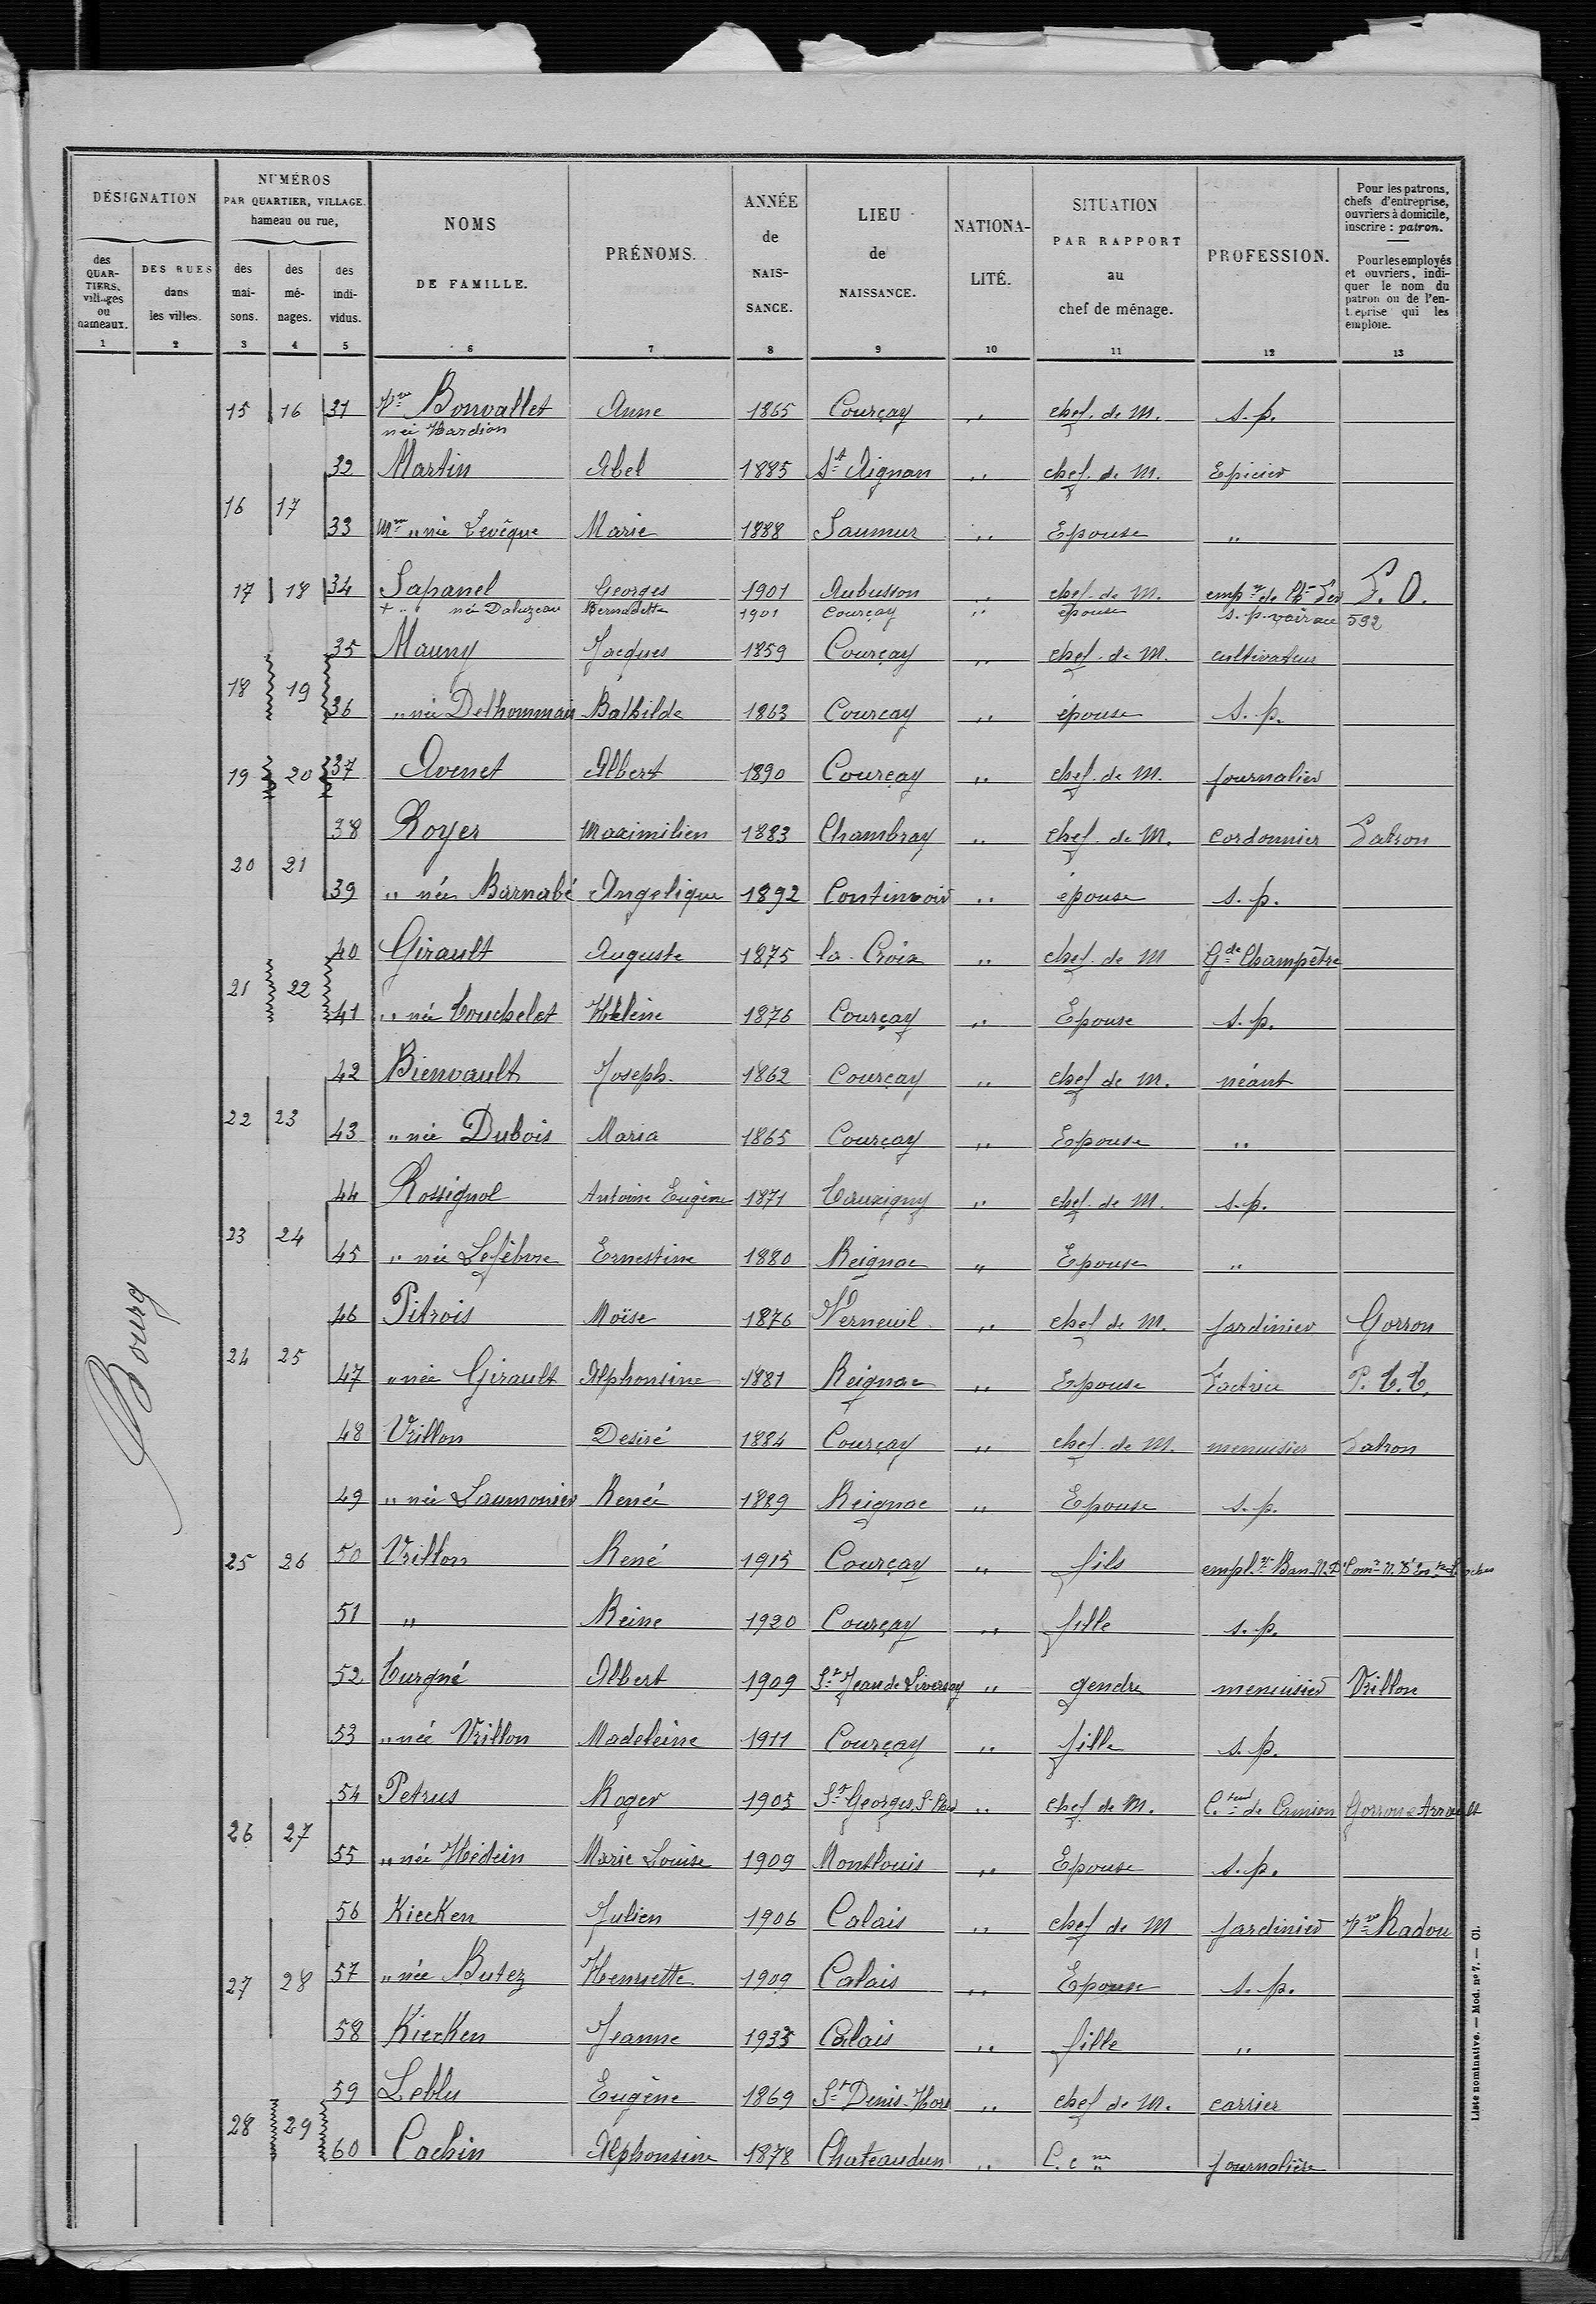 DÉSIGNATION
NUMÉROS
PAR QUARTIER, VILLAGE,
hameau ou rue,
des
QUAR-
TIERS,
villages
ou
hameaux.
DES RUES
dans
les villes.
des
mai-
sons.
des
mé-
nages.
des
indi-
vidus.
NOMS
DE FAMILLE.
PRÉNOMS.
ANNÉE
de
NAIS-
SANCE.
LIEU
de
NAISSANCE.
NATIONA-
LITÉ.
SITUATION
PAR RAPPORT
au
chef de ménage.
PROFESSION.
Pour les patrons,
chefs d'entreprise,
ouvriers à domicile,
inscrire : patron.
Pour les employés
et ouvriers, indi-
quer le nom du
patron ou de l'en-
treprise qui les
emploie.
1 2 3 4 5 6 7 8 9 10 11 12 13
Bourg
15 16 31 Vve Bonvallet Anne 1865 Courçay " chef de M. s. p.
née Hardion
32 Martin Abel 1885 St Aignan " chef de M. Epicier
16 17
33 Mme " née Levêque Marie 1888 Saumur " Epouse "
17 18 34 Sapanel Georges 1901 Aubusson " chef de M. P. O.
+ " née Daluzeau Bernadette 1901 Courçay " épouse s. p. 592
35 Mauny Jacques 1859 Courçay " chef de M. cultivateur
18 19
36 " née Delhommais Bathilde 1863 Courcay " épouse s. p.
19 20 37 Avenet Albert 1890 Courçay " chef de M. journalier
38 Royer Maximilien 1883 Chambray " chef de M. cordonnier Patron
20 21
39 " née Barnabé Angelique 1892 Continvoir " épouse s. p.
40 Girault Auguste 1875 la Croix " chef de M Gde Champêtre
21 22
41 " née Touchelet Hélène 1876 Courçay " Epouse s. p.
42 Bienvault Joseph 1862 Courçay " chef de M. néant
22 23
43 " née Dubois Maria 1865 Courçay " Epouse "
44 Rossignol Antoine Eugène 1871 Tauxigny " chef de M. s. p.
23 24
45 " née Lefèbvre Ernestine 1880 Reignac " Epouse "
46 Pitrois Moïse 1876 Verneuil " chef de M. jardinier Gorron
24 25
47 " née Girault Alphonsine 1881 Reignac " Epouse Factrice P. T. T.
48 Vrillon Desiré 1884 Courçay " chef de M. menuisier Patron
49 " née Laumonier Renée 1889 Reignac " Epouse s. p.
25 26 50 Vrillon René 1915 Courçay " fils
51 " Reine 1920 Courçay " fille s. p.
52 Turgné Albert 1909 St Jean de Liversay " gendre menuisier Vrillon
53 " née Vrillon Madeleine 1911 Courçay " fille s. p.
54 Petrus Roger 1905 St Georges " chef de M. de Camion Gorron
26 27
55 " née Hédein Marie Louise 1909 Montlouis " Epouse s. p.
56 Kiecken Julien 1906 Calais " chef de M jardinier Vve Radou
27 28 57 " née Butez Henriette 1909 Calais " Epouse s. p.
58 Kiecken Jeanne 1935 Calais " fille "
59 Leblu Eugène 1869 St Denis-Hors " chef de M. carrier
28 29
60 Cachin Alphonsine 1878 Chateaudun " journalière
Liste nominative. — Mod. n° 7. — Cl.